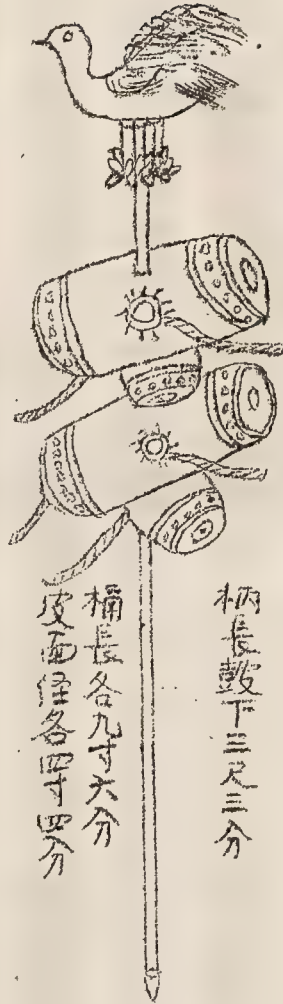 柄長鼓下三尺三分
桶長各九寸六分
皮面径各四寸四分